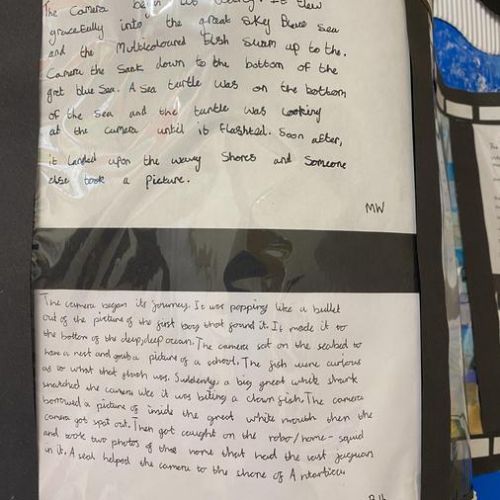 The Camera began its It flew
gracefully into the great sky Blue sea
and the Multicoloured fish swam up to the.
Camera the Sank down to the bottom of the
gret blue Sea. A Sea turtle was on the bottom
of the Sea and the turtle was looking
at the camera until it flashted. Soon after,
it landed upon the wavy Shores and Someone
else took a picture.
MW
The camera began its journey. It was popping like a bullet
out of the picture of the first boy that found it. It made it to
the bottom of the deep, deep ocean. The camera sat on the seabed to
have a rest and grab a picture of a school. The fish were curious
as to what that flash was. Suddenly, a big great white shark
snatched the camera like it was biting a clown fish. The camera
borrowed a picture of inside the great white mouth then the
camera got spat out. Then got caught on the robo/home-squid
and took two photos of that had the vast
in it. A seal helped the camera to the shore of Antartica